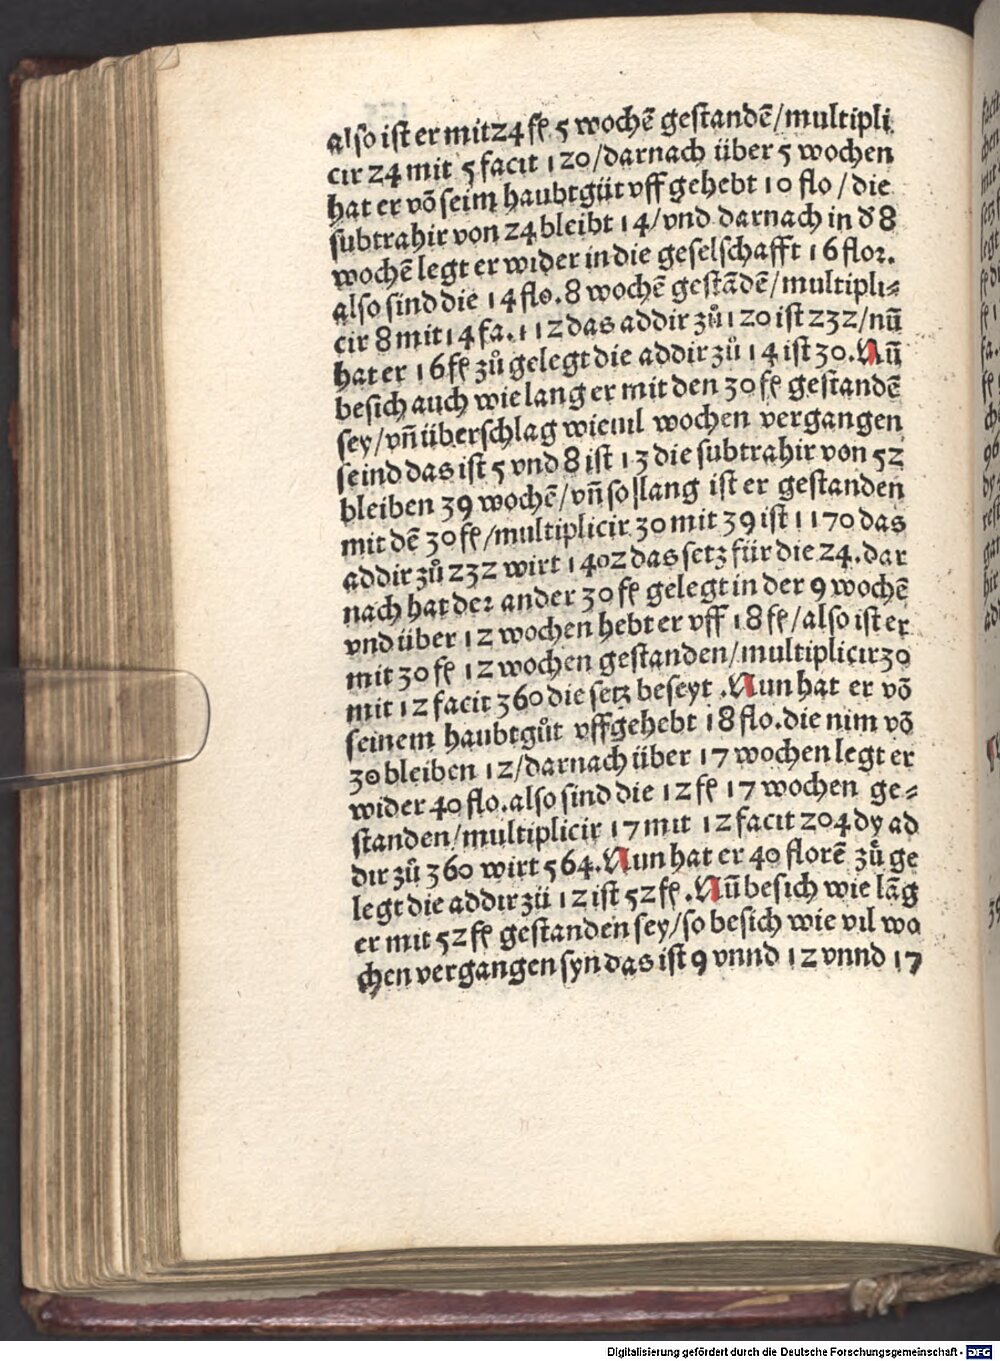 also ist er mit 24 fł 5 wochē gestandē/multipli
cir 24 mit 5 facit 120/darnach über 5 wochen
hat er vō seim haubtgůt vff gehebt 10 flo/die
subtrahir von 24 bleibt 14/vnd darnach in d̕ 8
wochē legt er wider in die geselschafft 16 flor.
also sind die 14 flo. 8 wochē gestādē/multipli⸗
cir 8 mit 14 fa. 112 das addir zů 120 ist 232/nū
hat er 16 fł zů gelegt die addir zů 14 ist 30. Nū
besich auch wie lang er mit den 30 fł gestandē
sey/vñ überschlag wieuil wochen vergangen
seind das ist 5 vnd 8 ist 13 die subtrahir von 52
bleiben 39 wochē/vñ so lang ist er gestanden
mit dē 30 fł/multiplicir 30 mit 39 ist 1170 das
addir zů 232 wirt 1402 das setz für die 24. dar
nach hat der ander 30 fł gelegt in der 9 wochē
vnd über 12 wochen hebt er vff 18 fł/also ist er
mit 30 fł 12 wochen gestanden/multiplicir 30
mit 12 facit 360 die setz beseyt. Nun hat er vō
seinem haubtgůt vffgehebt 18 flo. die nim vō
30 bleiben 12/darnach über 17 wochen legt er
wider 40 flo. also sind die 12 fł 17 wochen ge⸗
standen/multiplicir 17 mit 12 facit 204 dy ad
dir zů 360 wirt 564. Nun hat er 40 florē zů ge
legt die addir zů 12 ist 52 fł. Nū besich wie lāg
er mit 52 fł gestanden sey/so besich wie vil wo
chen vergangen syn das ist 9 vnnd 12 vnnd 17
Digitalisierung gefördert durch die Deutsche Forschungsgemeinschaft - DFG